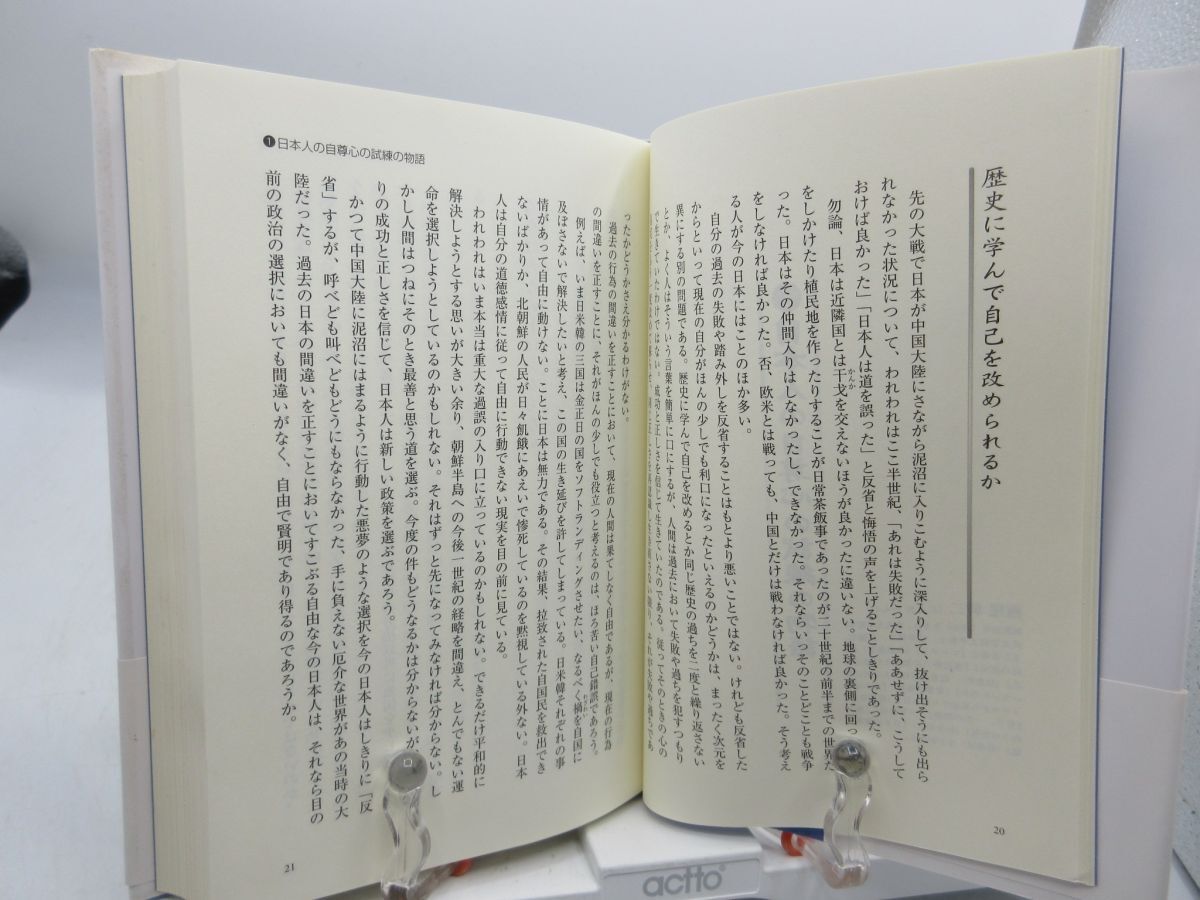 歴史に学んで自己を改められるか
先の大戦で日本が中国大陸にさながら泥沼に入りこむように深入りして、抜け出そうにも出ら
れなかった状況について、われわれはここ半世紀、「あれは失敗だった」「ああせずに、こうして
おけば良かった」「日本人は道を誤った」と反省と悔悟の声を上げることしきりであった。
勿論、日本は近隣国とは干戈を交えないほうが良かったに違いない。地球の裏側に回っ
をしかけたり植民地を作ったりすることが日常茶飯事であったのが二十世紀の前半までの世界だ
った。日本はその仲間入りはしなかったし、できなかった。それならいっそのことどことも戦争
をしなければ良かった。否、欧米とは戦っても、中国とだけは戦わなければ良かった。そう考え
る人が今の日本にはことのほか多い。
自分の過去の失敗や踏み外しを反省することはもとより悪いことではない。けれども反省した
からといって現在の自分がほんの少しでも利口になったといえるのかどうかは、まったく次元を
異にする別の問題である。歴史に学んで自己を改めるとか同じ歴史の過ちを二度と繰り返さない
とか、よく人はそういう言葉を簡単に口にするが、人間は過去において失敗や過ちを犯すつもり
で生きていたわけではない。成功と正しさを信じて生きていたのである。従ってそのときの心の
20
❶日本人の自尊心の試練の物語
ったかどうかさえ分かるわけがない。
過去の行為の間違いを正すことにおいて、現在の人間は果てしなく自由であるが、現在の行為
の間違いを正すことに、それがほんの少しでも役立つと考えるのは、ほろ苦い自己錯誤であろう。
例えば、いま日米韓の三国は金正日の国をソフトランディングさせたい、なるべく禍を自国に
及ぼさないで解決したいと考え、この国の生き延びを許してしまっている。日米韓それぞれの事
情があって自由に動けない。ことに日本は無力である。その結果、拉致された自国民を救出でき
ないばかりか、北朝鮮の人民が日々飢餓にあえいで惨死しているのを黙視している外ない。日本
人は自分の道徳感情に従って自由に行動できない現実を目の前に見ている。
われわれはいま本当は重大な過誤の入り口に立っているのかもしれない。できるだけ平和的に
解決しようとする思いが大きい余り、朝鮮半島への今後一世紀の経略を間違え、とんでもない運
命を選択しようとしているのかもしれない。それはずっと先になってみなければ分からない。し
かし人間はつねにそのとき最善と思う道を選ぶ。今度の件もどうなるかは分からないが
りの成功と正しさを信じて、日本人は新しい政策を選ぶであろう。
かつて中国大陸に泥沼にはまるように行動した悪夢のような選択を今の日本人はしきりに「反
省」するが、呼べども叫べどもどうにもならなかった、手に負えない厄介な世界があの当時の大
陸だった。過去の日本の間違いを正すことにおいてすこぶる自由な今の日本人は、それなら目の
前の政治の選択においても間違いがなく、自由で賢明であり得るのであろうか。
21
actto